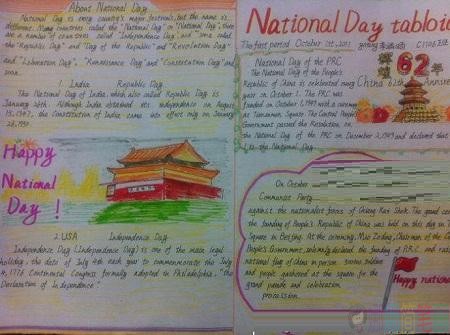 About National Day
National Day is every country's major festival, but the name is
different. Many countries called the "National Day" or "National Day", there
are a number of countries called "Independence Day", and some called
the "Republic Day" and "Day of the Republic" and "Revolution Day"
and "Liberation Day", "Renaissance Day" and "Constitution Day" and
soon.
1. India Republic Day
The National Day of India, which also called Republic Day is
January 26th. Although India obtained its independence on August
15, 1947, the Constitution of India came into effect only on January
26, 1950
Happy
National
Day !
2. USA Independence Day
Independence Day (Independence Day) is one of the main legal
holiday, the date of July 4th each year to commemorate the July
4, 1776 Continental Congress formally adopted in Philadelphia, "the
Declaration of Independence."
National Day tabloid
The first period October 1st, 2011
National Day of the PRC
The National Day of the People's
Republic of China is celebrated every
year on October 1. The PRC was
founded on October 1, 1949 with a ceremony
at Tiananmen Square. The Central People's
Government passed the Resolution on
the National Day of the PRC on December 2, 1949 and declared that
is the National Day.
辉煌 62 年
China 62th Annivers
On October
Communist Party
against the nationalist forces of Chiang Kai Shek. The grand cere
the founding of People's Republic of China was held on this day in
Square in Beijing. At the ceremony, Mao Zedong, Chairman of the Ce
People's Government, solemnly declared the founding of P.R.C. and rais
national flag of China in person. 300000 soldiers
and people gathered at the square for the
grand parade and celebration
procession.
Happy national